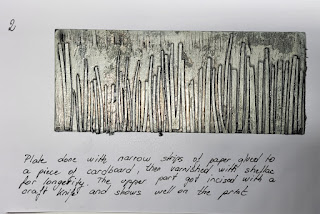 2
Plate done with narrow strips of paper glued to
a piece of cardboard, then varnished with shellac
for longetivity. The upper part got incised with a
craft knife and shows well on the print